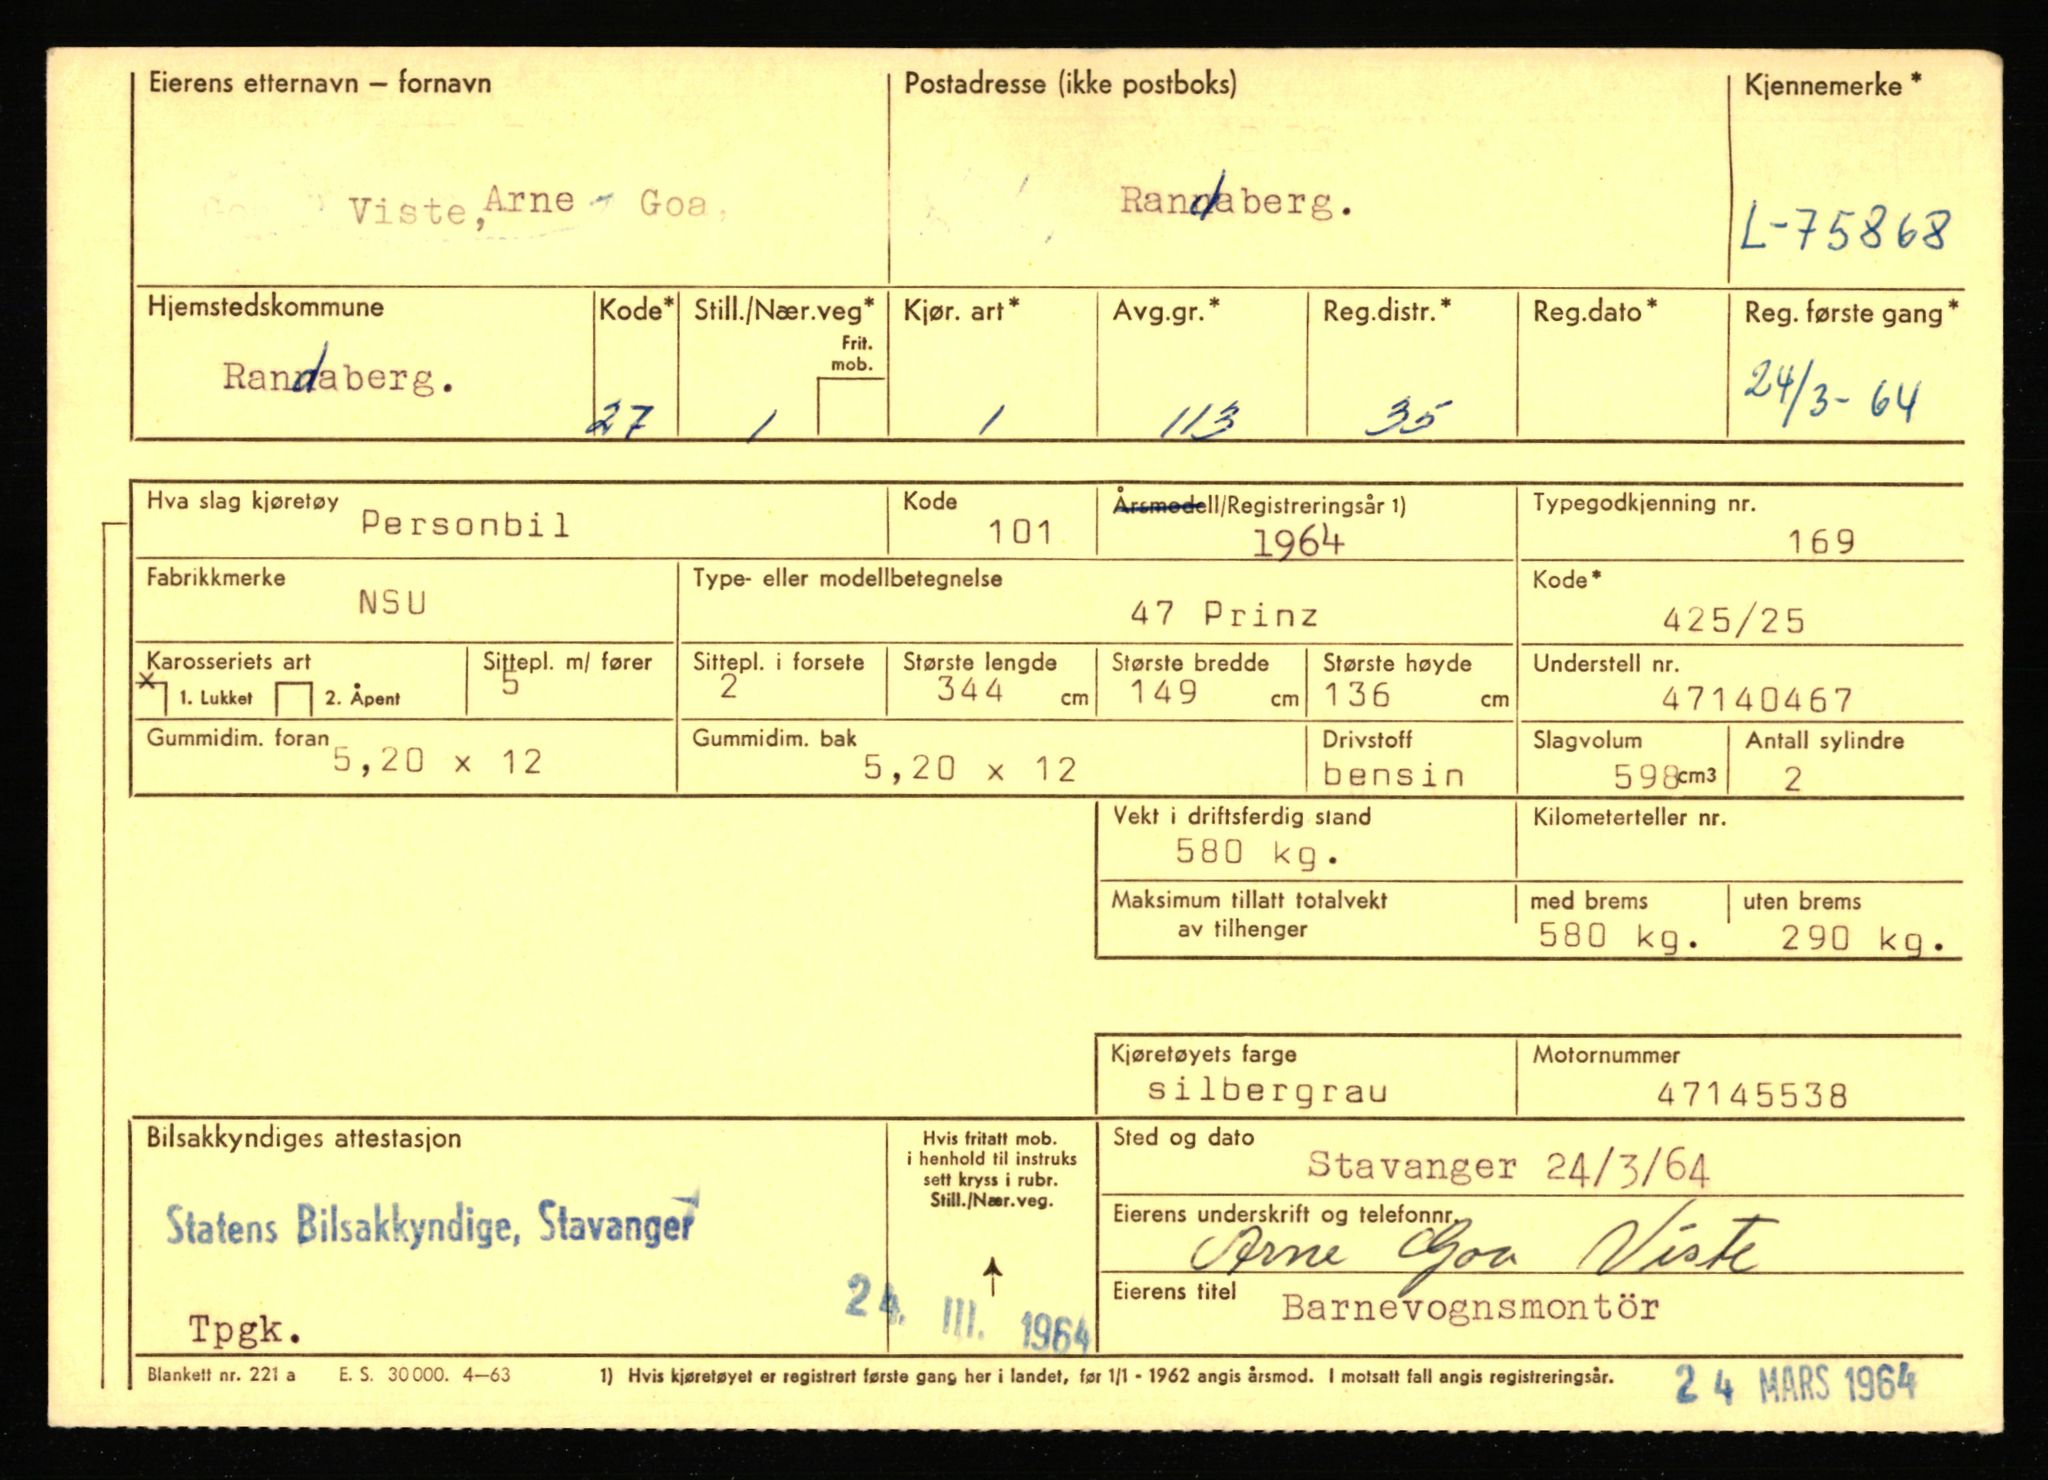 Eierens etternavn – fornavn
Viste, Arne - Goa,
Postadresse (ikke postboks)
Randaberg.
Kjennemerke*
L-75868
Hjemstedskommune
Randaberg.
Kode*
27
Still./Nær.veg*
Frit.
mob.
1
Kjør. art*
1
Avg.gr.*
113
Reg.distr.*
35
Reg.dato*
Reg. første gang*
24/3-64
Hva slag kjøretøy
Personbil
Kode
101
Årsmodell/Registreringsår 1)
1964
Typegodkjenning nr.
169
Fabrikkmerke
NSU
Type- eller modellbetegnelse
47 Prinz
Kode*
425/25
Karosseriets art
x 1. Lukket 2. Åpent
Sittepl. m/ fører
5
Sittepl. i forsete
2
Største lengde
344 cm
Største bredde
149 cm
Største høyde
136 cm
Understell nr.
47140467
Gummidim. foran
5,20 x 12
Gummidim. bak
5,20 x 12
Drivstoff
bensin
Slagvolum
598 cm3
Antall sylindre
2
Vekt i driftsferdig stand
580 kg.
Kilometerteller nr.
Maksimum tillatt totalvekt
av tilhenger
med brems
580 kg.
uten brems
290 kg.
Kjøretøyets farge
silbergrau
Motornummer
47145538
Bilsakkyndiges attestasjon
Statens Bilsakkyndige, Stavanger
24. III. 1964
Tpgk.
Hvis fritatt mob.
i henhold til instruks
sett kryss i rubr.
Still./Nær.veg.
Sted og dato
Stavanger 24/3/64
Eierens underskrift og telefonnr.
Arne Goa Viste
Eierens titel
Barnevognsmontör
Blankett nr. 221 a E. S. 30 000. 4–63 1) Hvis kjøretøyet er registrert første gang her i landet, før 1/1 - 1962 angis årsmod. I motsatt fall angis registreringsår.
24 MARS 1964